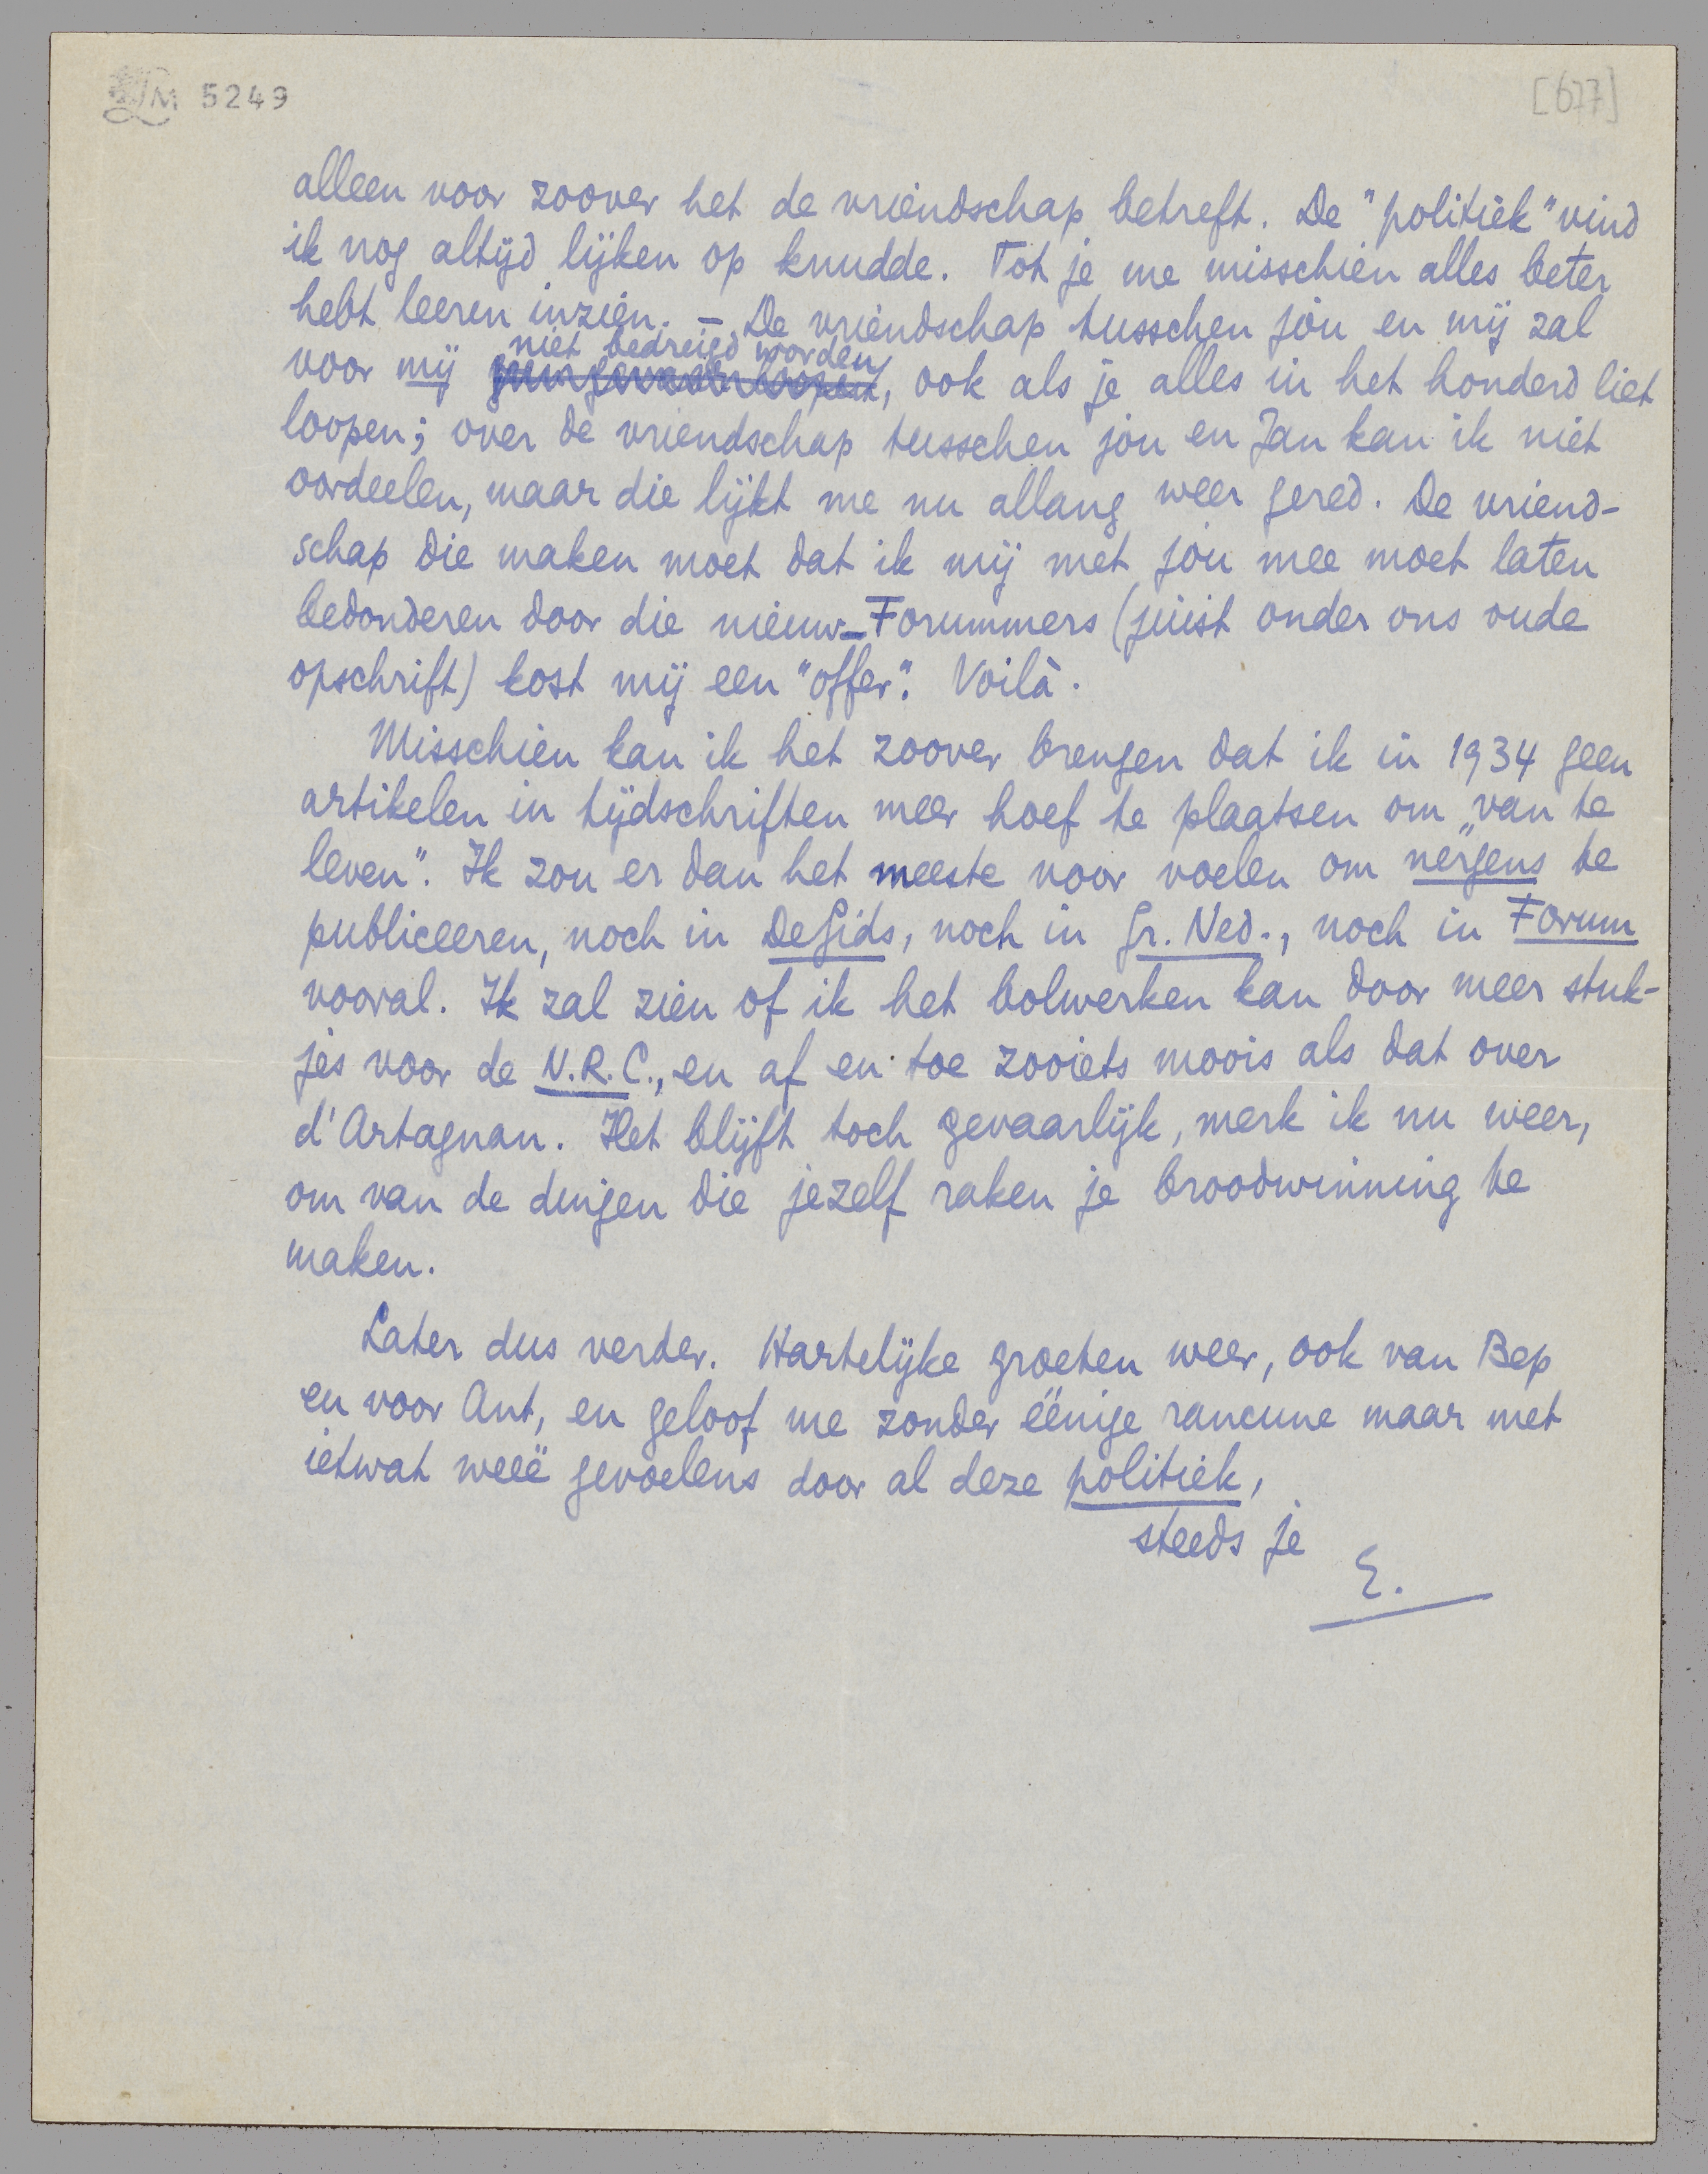 LM 5249
[677]
alleen voor zoover het de vriendschap betreft. De "politiek" vind
ik nog altijd lijken op knudde. Tot je me misschien alles beter
hebt leeren inzien. – De vriendschap tusschen jou en mij zal
niet bedreigd worden
voor mij , ook als je alles in het honderd liet
loopen; over de vriendschap tusschen jou en Jan kan ik niet
oordeelen, maar die lijkt me nu allang weer gered. De vriend-
schap die maken moet dat ik mij met jou mee moet laten
bedonderen door die nieuw-Forummers (juist onder ons oude
opschrift) kost mij een "offer". Voilà.
Misschien kan ik het zoover brengen dat ik in 1934 geen
artikelen in tijdschriften meer hoef te plaatsen om „van te
leven". Ik zou er dan het meeste voor voelen om nergens te
publiceeren, noch in De Gids, noch in Gr. Ned., noch in Forum
vooral. Ik zal zien of ik het bolwerken kan door meer stuk-
jes voor de N.R.C., en af en toe zooiets moois als dat over
d'Artagnan. Het blijft toch gevaarlijk, merk ik nu weer,
om van de dingen die jezelf raken je broodwinning te
maken.
Later dus verder. Hartelijke groeten weer, ook van Bep
en voor Ant, en geloof me zonder éénige rancune maar met
ietwat weeë gevoelens door al deze politiek,
steeds je
E.